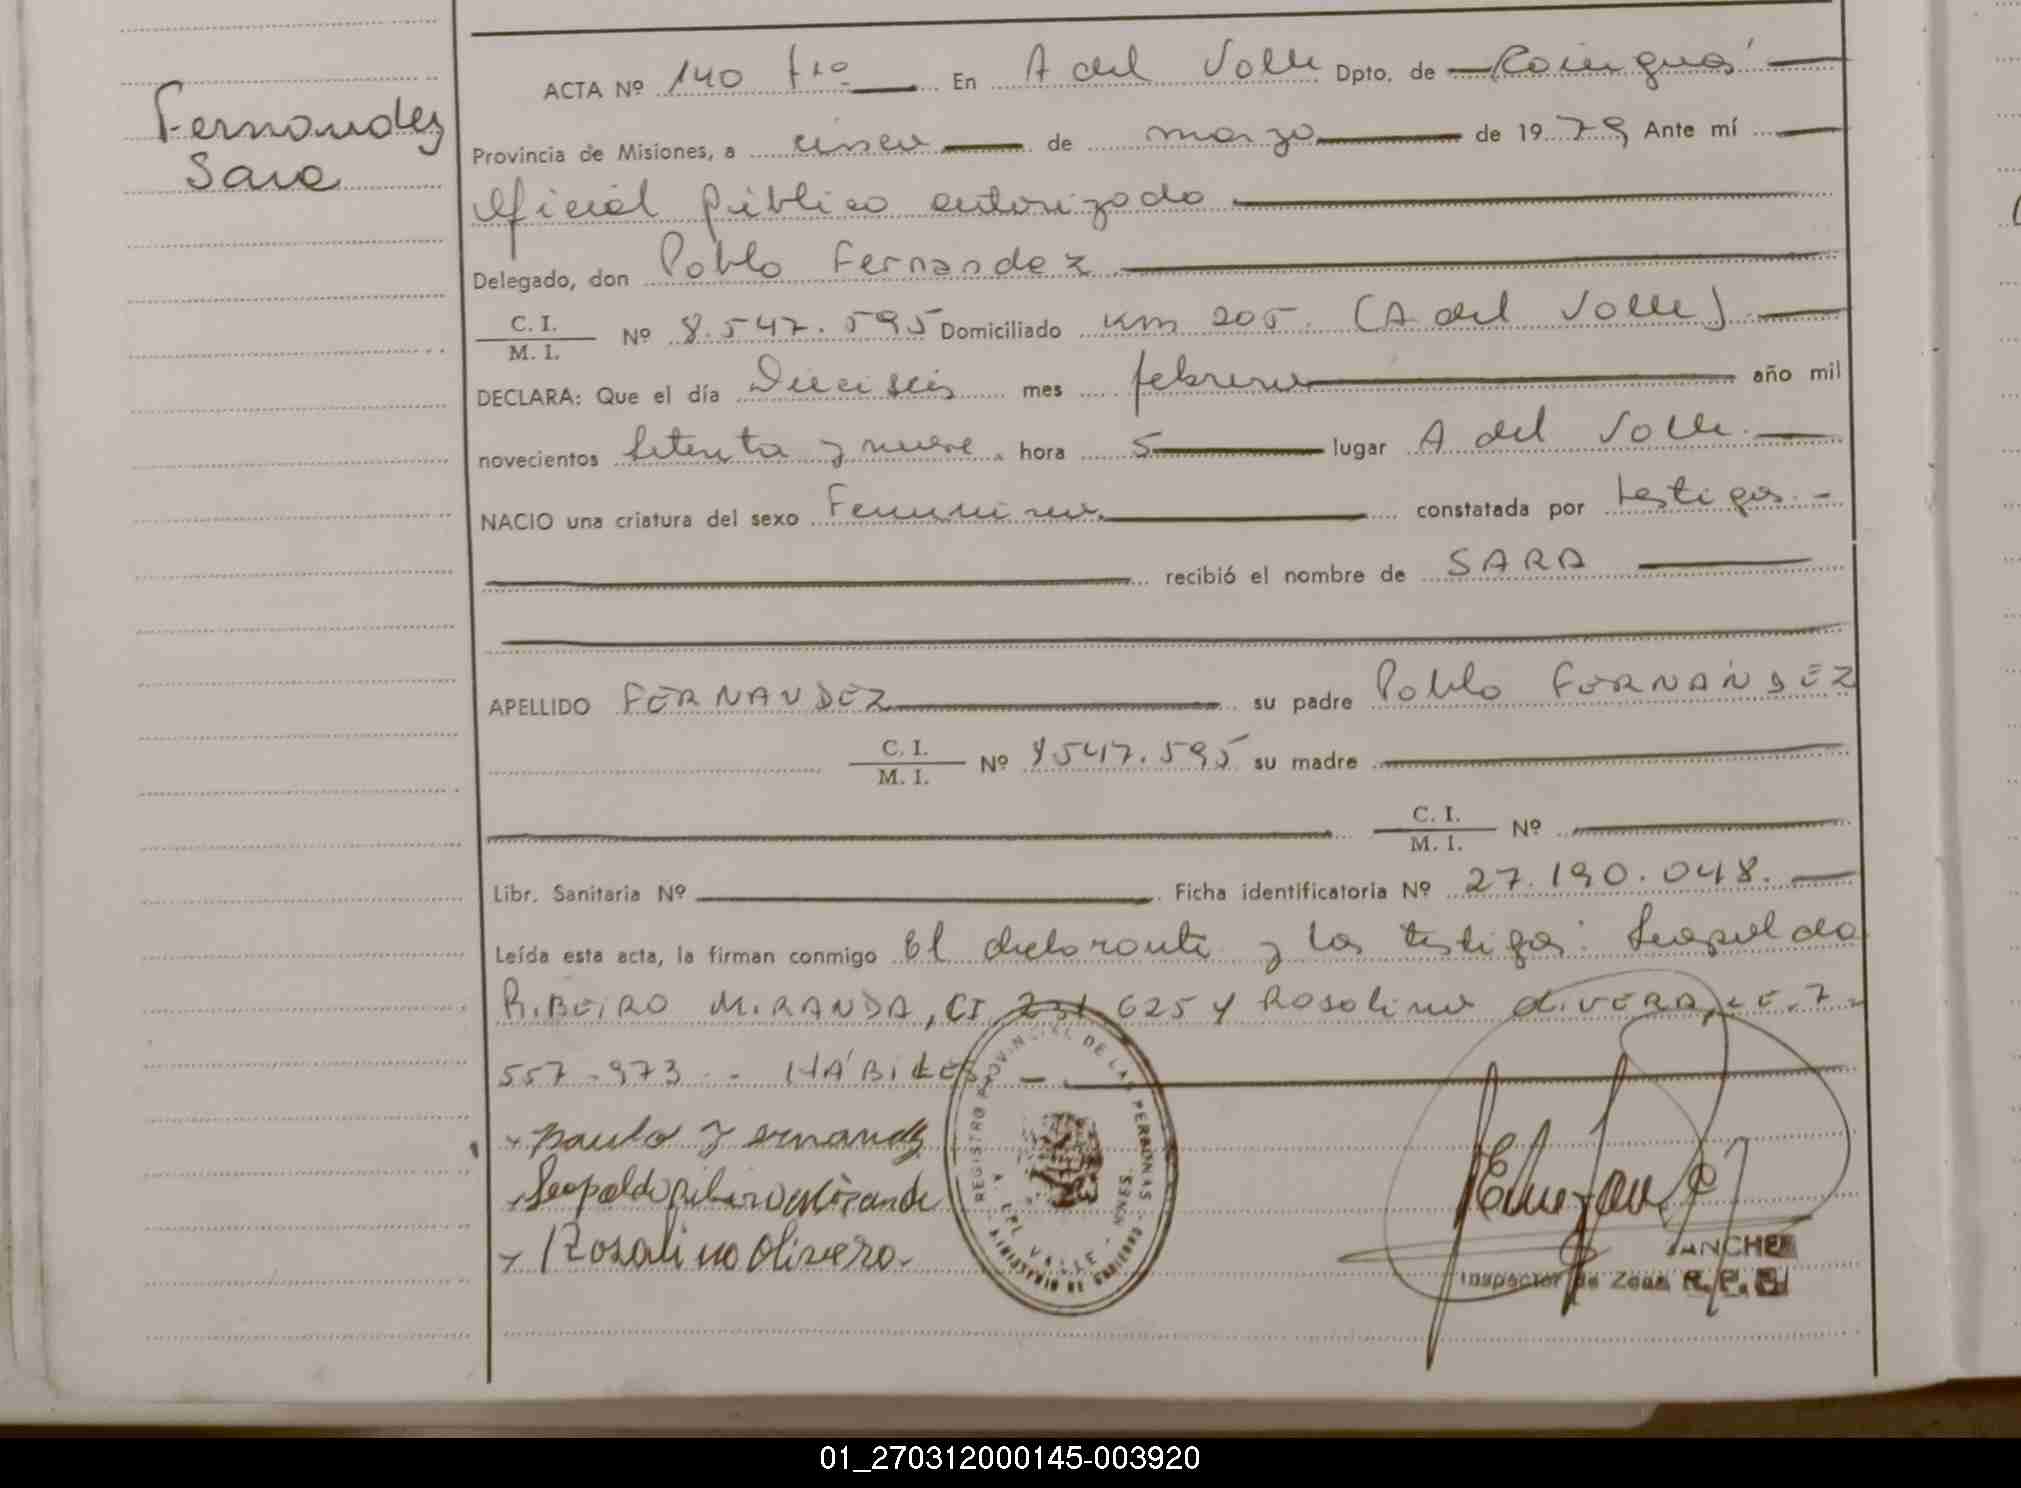 Fernandez
Sara
ACTA Nº 140 fro En A del Valle Dpto. de Cainguás
Provincia de Misiones, a cinco de marzo de 1979 Ante mí
Oficial público autorizado
Delegado, don Pablo Fernandez
C. I. / M. I. Nº 8.547.595 Domiciliado Km 205 (A del Valle)
DECLARA: Que el día Dieciseis mes febrero año mil
novecientos Setenta y nueve hora 5 lugar A del Valle
NACIO una criatura del sexo Femenino constatada por testigos
recibió el nombre de SARA
APELLIDO FERNANDEZ su padre Pablo FERNÁNDEZ
C. I. / M. I. Nº 8547.595 su madre
C. I. / M. I. Nº
Libr. Sanitaria Nº Ficha identificatoria Nº 27.190.048.
Leída esta acta, la firman conmigo El declarante y los testigos: Leopoldo
RIBEIRO MIRANDA, CI 231.625 y Rosalino OLIVERA, L.E. 7-
557-973 -- HÁBILES
Paulo Fernandez
Leopoldo Ribeiro Miranda
Rosalino Olivera
REGISTRO PROVINCIAL DE LAS PERSONAS
MINISTERIO DE GOBIERNO
A. DEL VALLE - MISIONES
SANCHEZ
Inspector de Zona R. P. P.
01_270312000145-003920